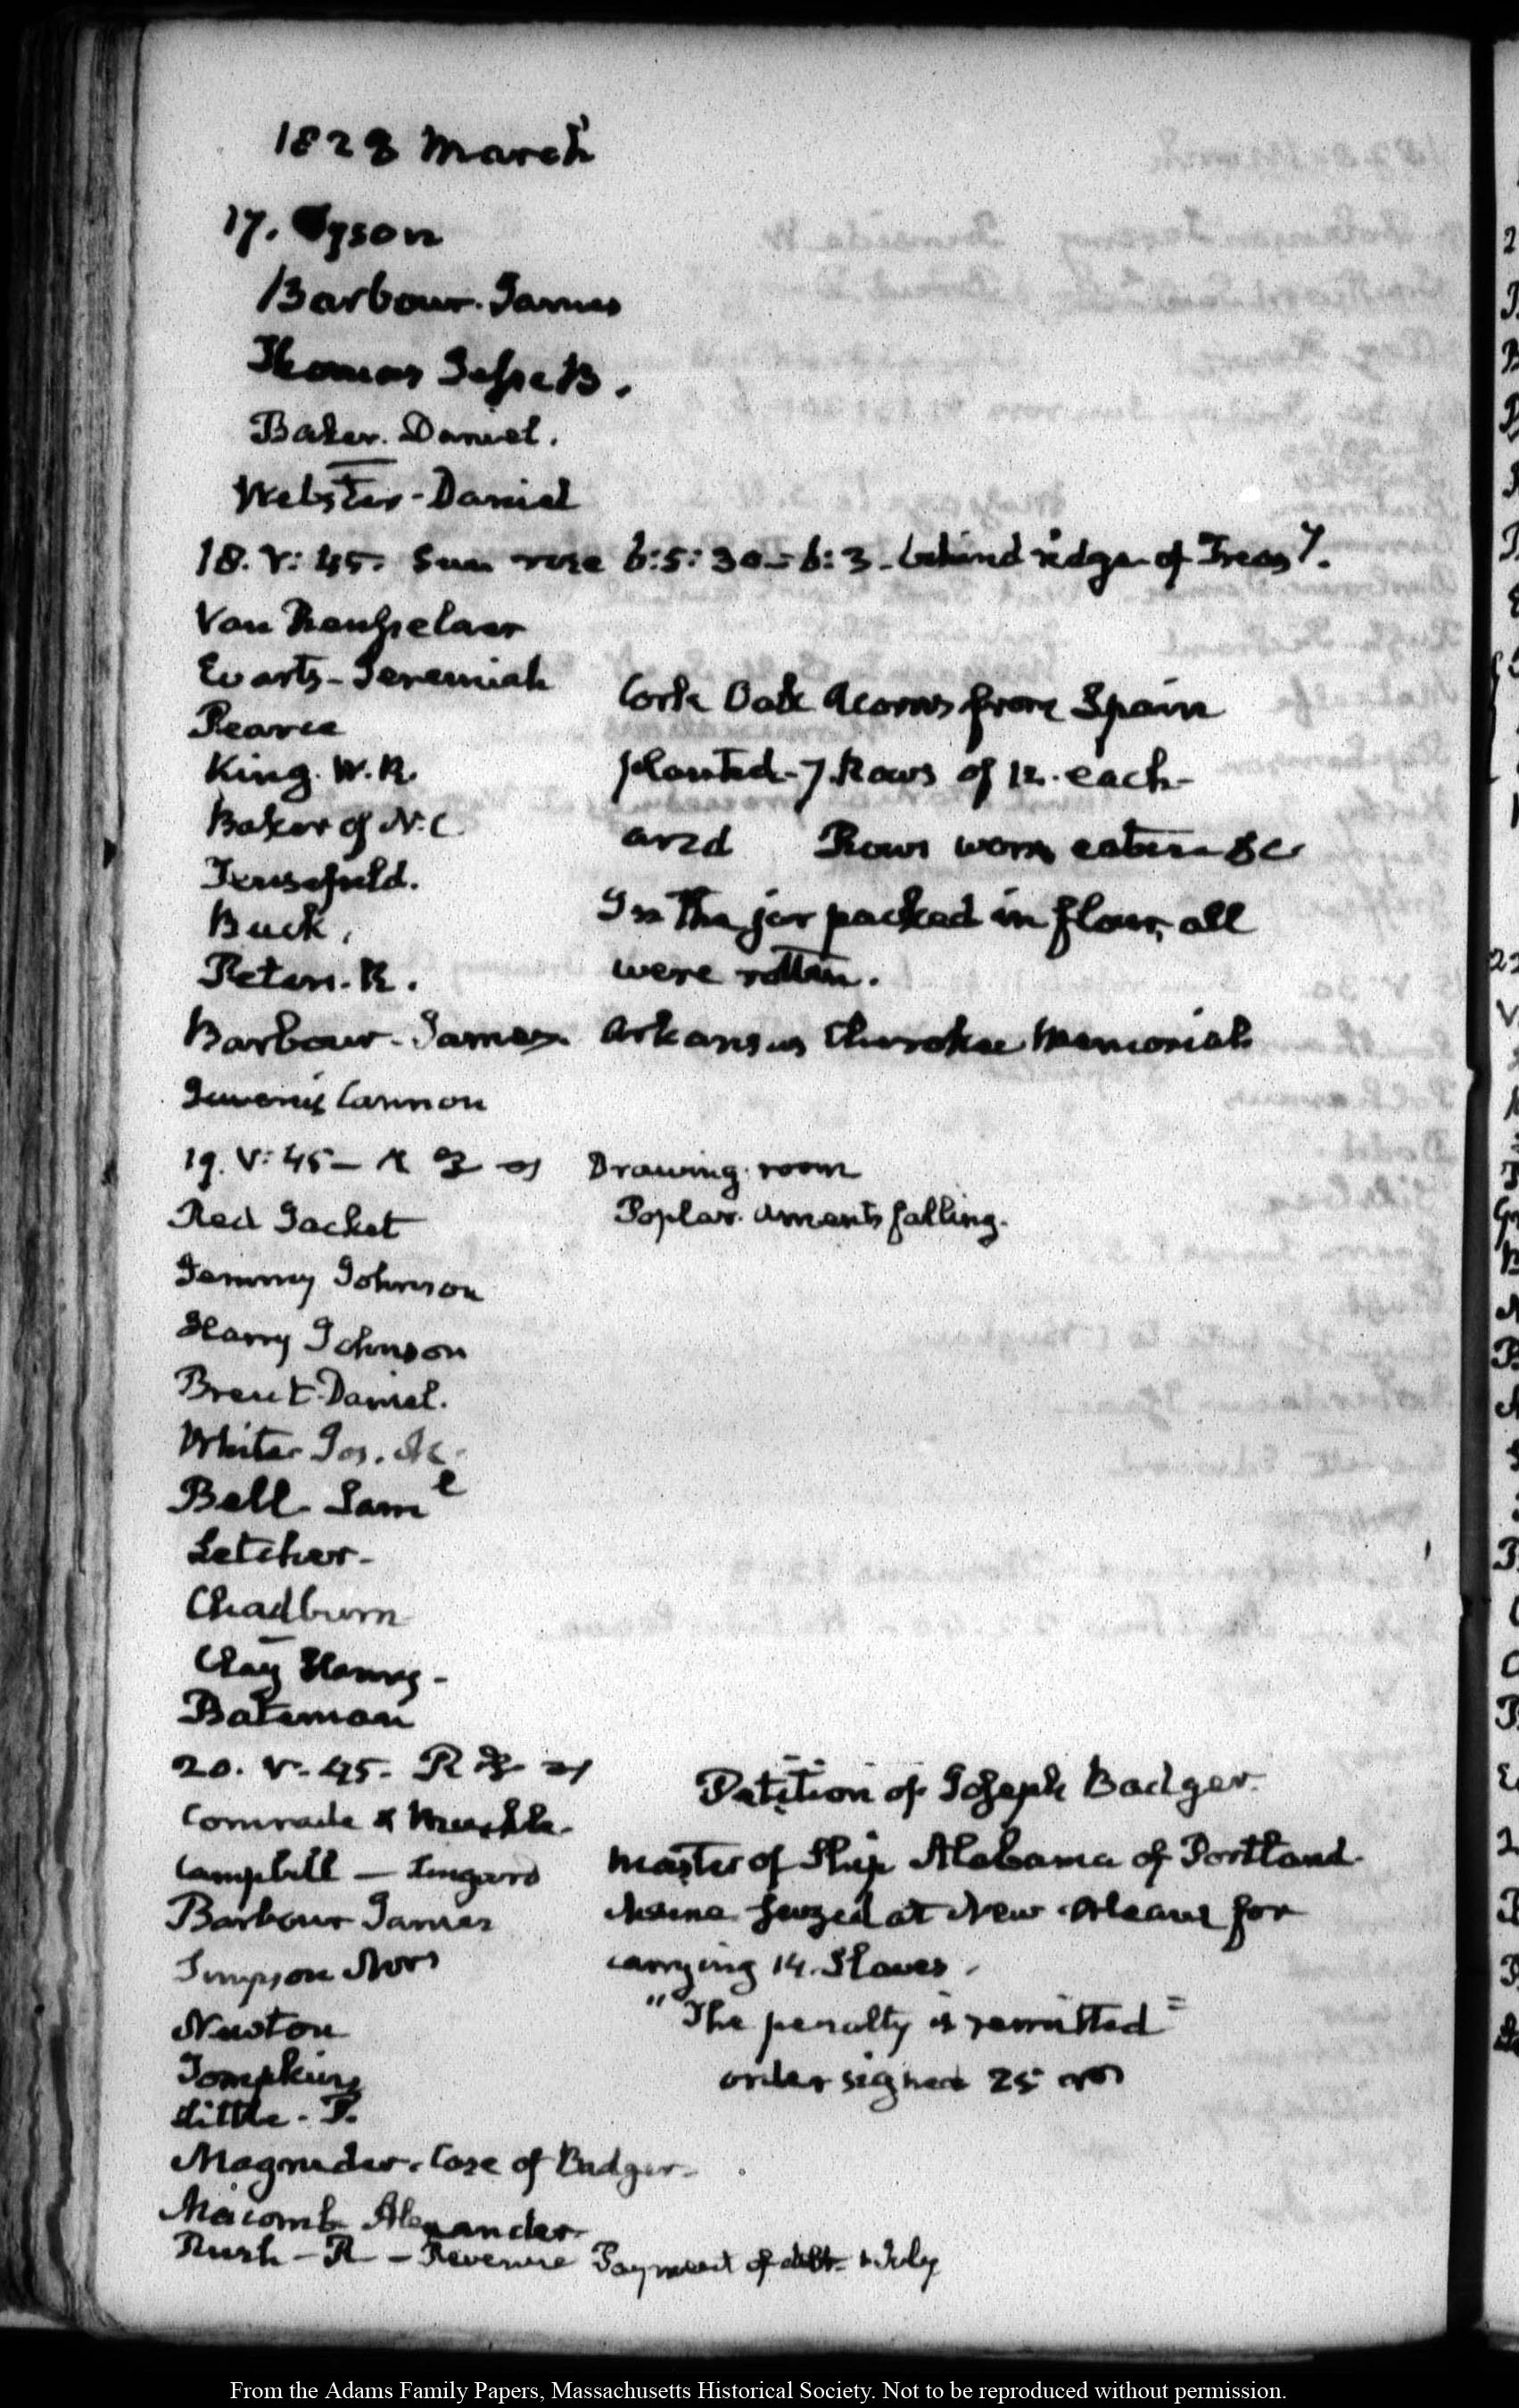 1828 March
17. Tyson
Barbour. James
Thomas Jesse B.
Baker. Daniel.
Webster - Daniel
18. V: 45. Sun rose 6:5:30 - 6:3 - behind ridge of Treasy.
Van Rensselaer
Evarts - Jeremiah
Pearce
King. W. R.
Baker of N. C.
Buck.
Peters. R.
Cork Oak Acorns from Spain
planted - 7 Rows of 12. each -
and Rows worm eaten &c
In the jar packed in flour, all
were rotten.
Barbour - James Arkansas Cherokee Memorial
Cannon
19. V: 45 - Drawing room
Red Jacket Poplar. aments falling.
Jemmy Johnson
Harry Johnson
Brent Daniel.
White Jos. M.
Bell - Saml
Letcher -
Chadburn
Clay Henry -
Bateman
20. V. 45. R
Campbell - Lingard
Barbour James
Simpson Mrs
Newton
Tompkins
Little - P.
Petition of Joseph Badger
Master of Ship Alabama of Portland
Maine seized at New Orleans for
carrying 14. Slaves.
"The penalty is remitted"
order signed 25
Magruder. Case of Badger -
Macomb Alexander
Rush - R - Revenue Payment of debt. 1 July
From the Adams Family Papers, Massachusetts Historical Society. Not to be reproduced without permission.